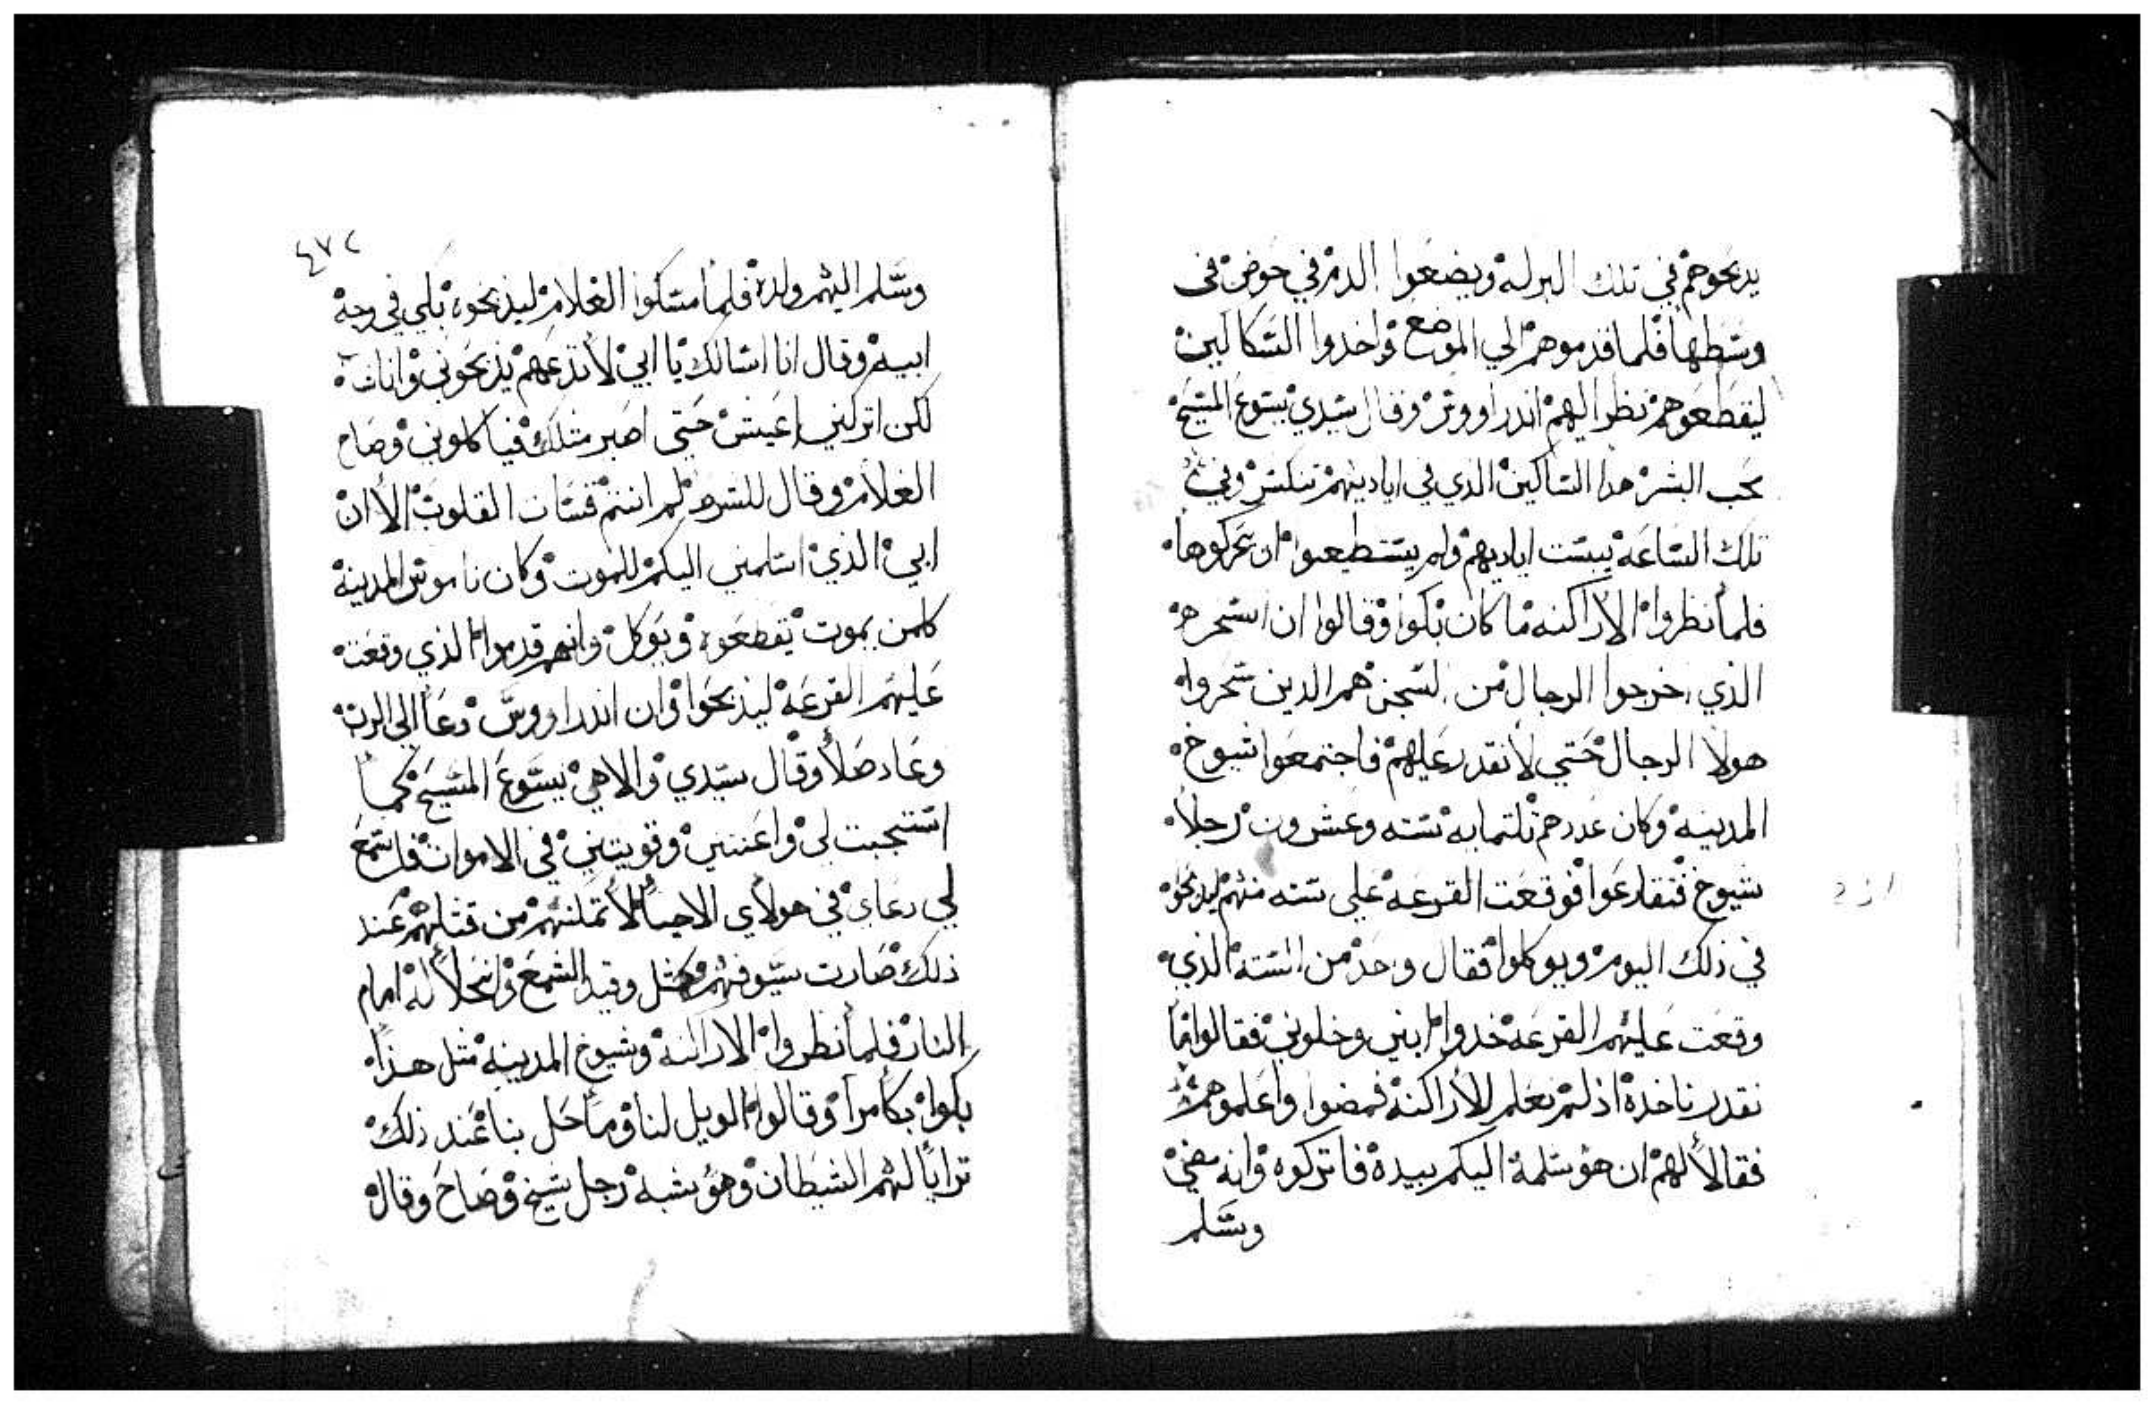 يدبحوهم في تلك البركه ويضعوا الدم في حوض في
وسطها فلما قدموهم الي الموضع واخدوا السكاكين
ليقطعوهم نظر اليهم اندراووس وقال سيدي يسوع المسيح
محب البشر هدا السكاكين الدي في اياديهم تنكسر وفي
تلك الساعه يبست اياديهم ولم يستطيعوا ان يحركوها
فلما نظروا الاراكنه ما كان بكوا وقالوا ان السحره
الذي اخرجوا الرجال من السجن هم الدين سحروا
هولا الرجال حتي لا نقدر عليهم فاجتمعوا شيوخ
المدينه وكان عددهم تلتمايه سته وعشرون رجلا
شيوخ فتقارعوا فوقعت القرعه علي سته منهم ليدبحوا
في ذلك اليوم ويوكلوا فقال واحد من السته الذي
وقعت عليهم القرعه خدوا ابني وخلوني فقالوا ما
نقدر ناخده اذ لم نعلم للاراكنه فمضوا واعلموهم
فقالا لهم ان هو سلمه اليكم بيده فاتركوه وانه مضي
وسلم
٤٧٢
وسلم اليهم ولده فلما امسكوا الغلام ليذبحوه بكي في وجه
ابيه وقال انا اسالك يا ابي لا تدعهم يذبحوني وانا شاب
لكن اتركني اعيش حتي اصير مثلك فياكلوني وصاح
الغلام وقال للشرط لم انتم قساة القلوب الا ان
ابي الذي اسلمني اليكم للموت وكان ناموس المدينه
كلمن يموت يقطعوه ويوكل وانهم قدموا الذي وقعت
عليهم القرعه ليذبحوا وان اندراووس دعا الي الرب
وعاد صلا وقال سيدي والاهي يسوع المسيح كما
استجبت لي واعنتني وقويتني في الاموات فلتسمع
لي دعاي في هولاي الاحيا لا تملنهم من قتلهم عند
ذلك صارت سيوفهم مثل وقيد الشمع وانحلاله امام
النار فلما نظروا الاراكنه وشيوخ المدينه مثل هذا
بكوا بكا مرا وقالوا الويل لنا وما حل بنا عند ذلك
ترايا لهم الشيطان وهو بشبه رجل شيخ وصاح وقال